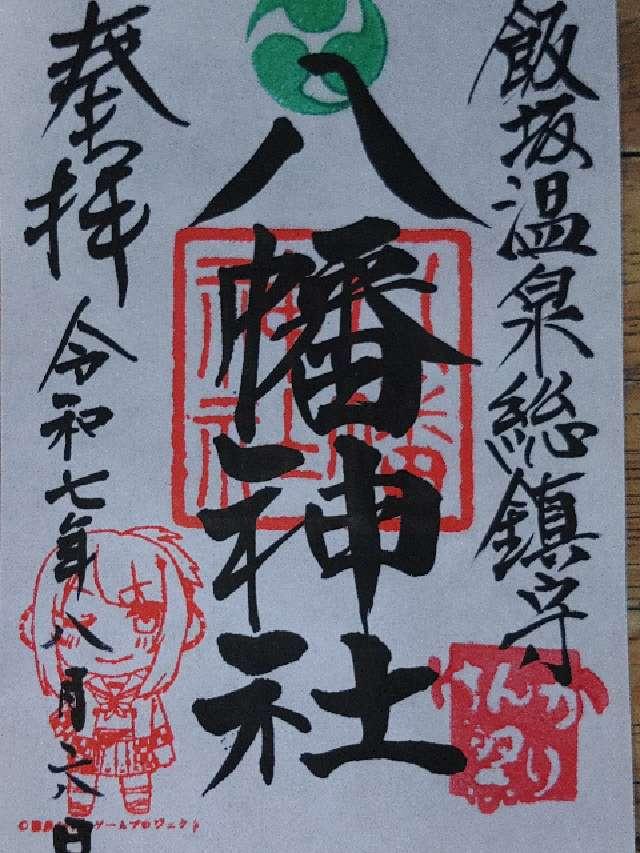 飯坂温泉総鎮守
八幡神社
奉拝
令和七年八月二六日
けんか
祭り
ゲームプロジェクト